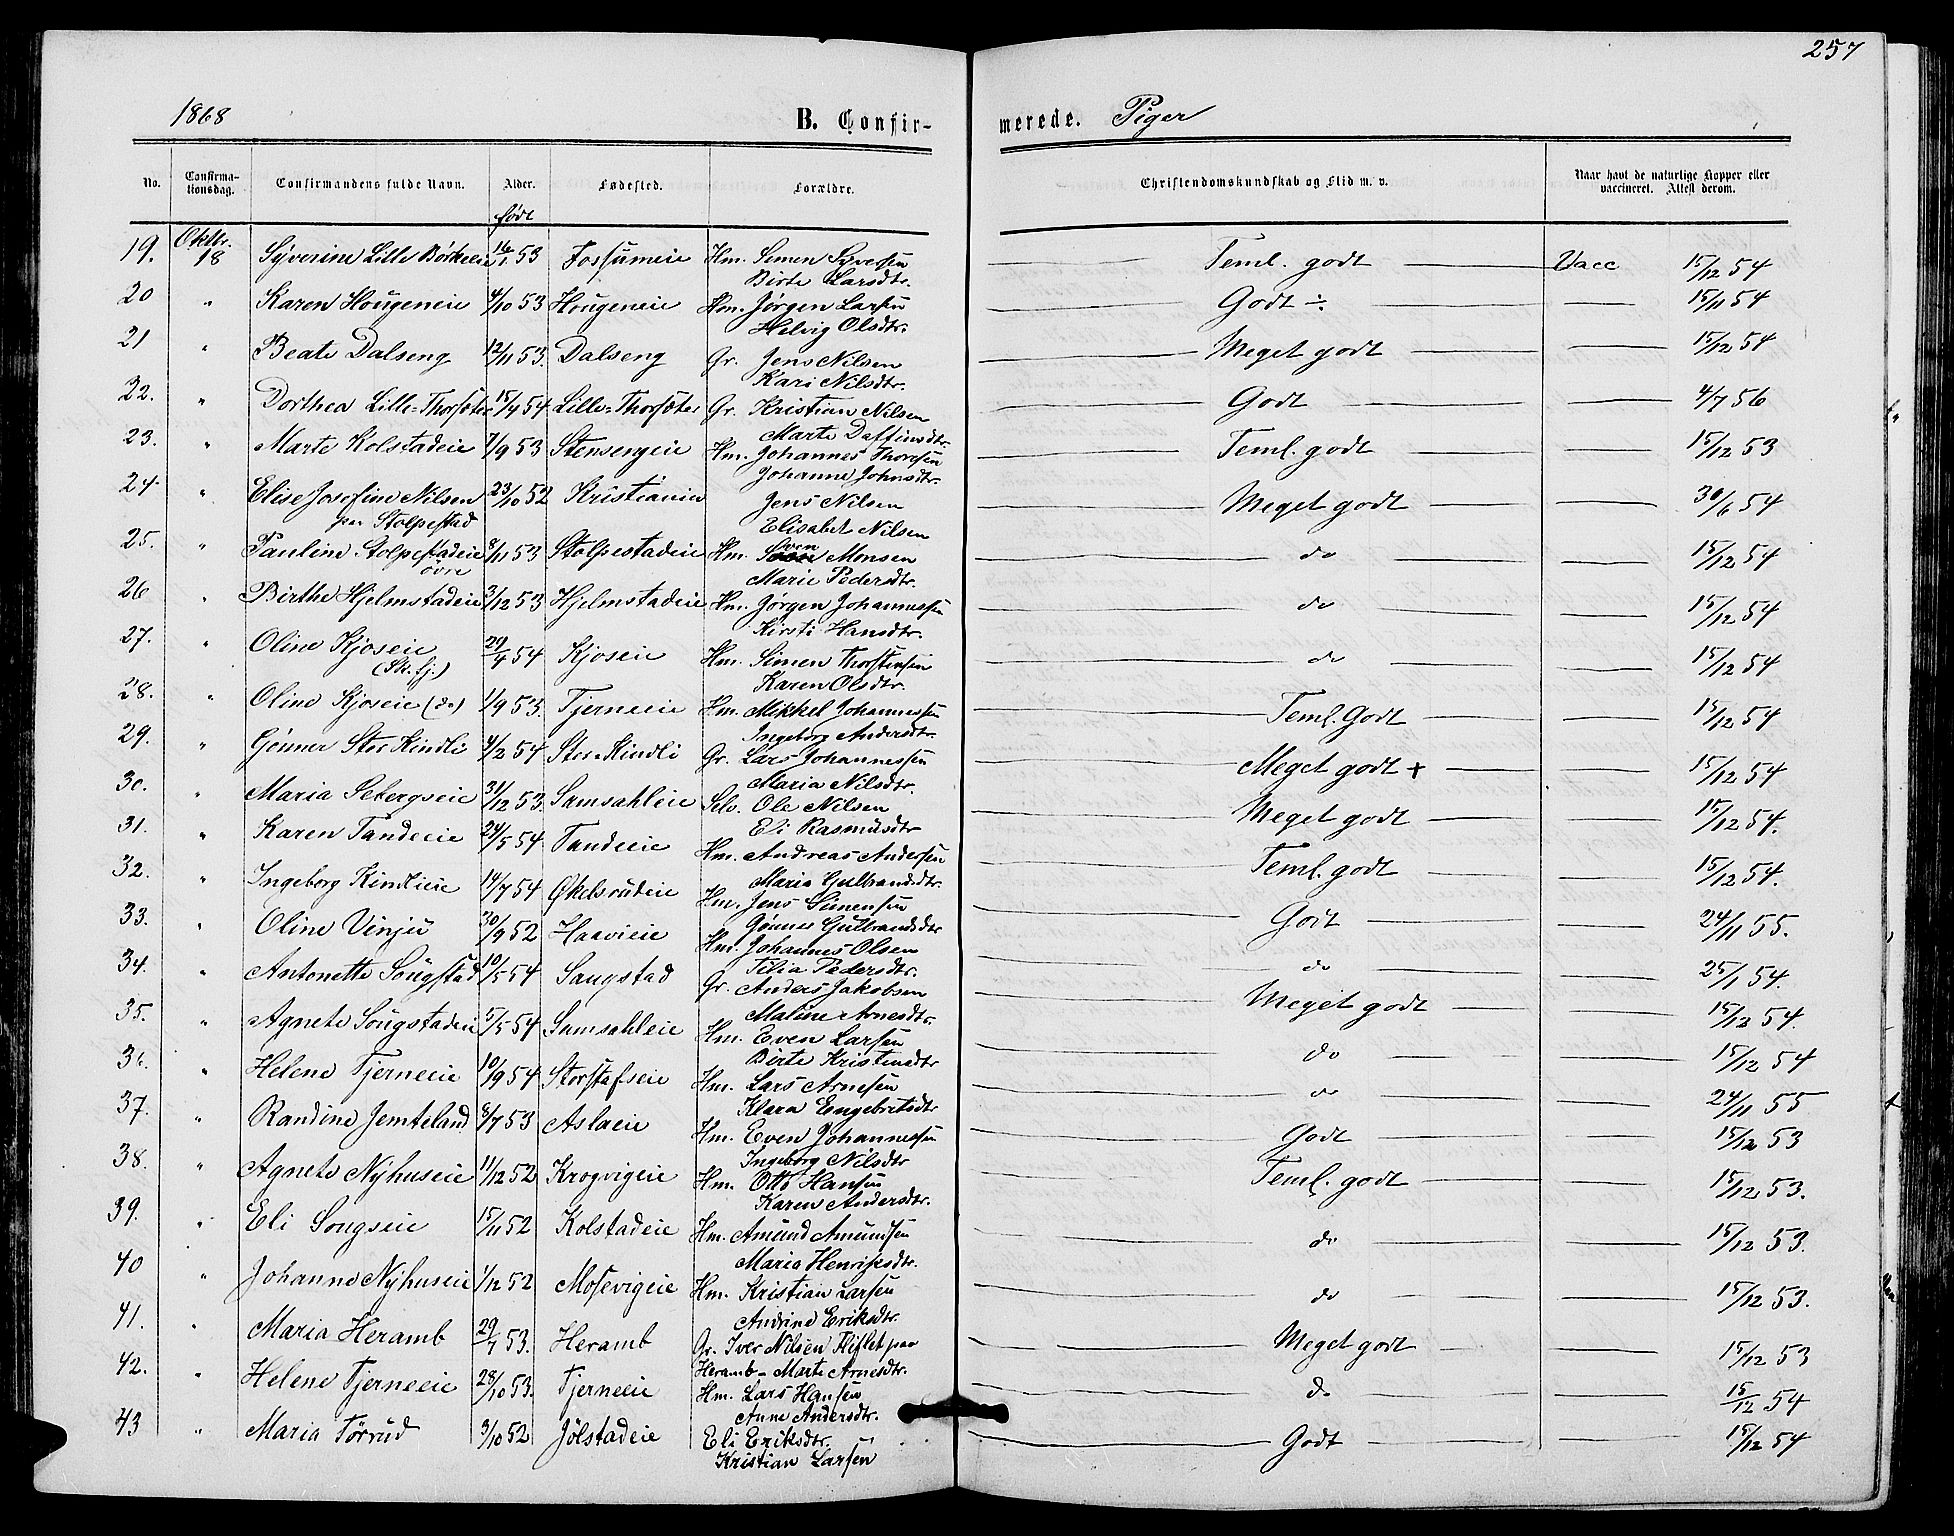 257
1868 B. Confirmerede. Piger
No. Confirmationsdag. Confirmandens fulde Navn. Alder. Fødested. Forældre. Christendomskundskab og Flid m. v. Naar havt de naturlige Kopper eller vaccineret. Attest derom.
født
19. Oktbr. 18 Syverine Lille Børkeeie 16/1 53 Fossumeie Hm. Simen Syversen Teml. godt Vacc 15/12 54
Birte Larsdtr.
20 " Karen Hougeneie 4/10 53 Hougeneie Hm. Jørgen Larsen Godt ÷ 15/11 54
Helvig Olsdtr.
21 " Beate Dalseng 12/11 53. Dalseng Gr. Jens Nilsen Meget godt 15/12 54
Kari Nilsdtr.
22. " Dorthea Lille-Thorsæter 15/4 54 Lille-Thorsæter Gr. Kristian Nilsen Godt 4/7 56
Marte Daffinsdtr.
23. " Marte Kolstadeie 7/9 53 Stensengeie Hm. Johannes Thoresen Teml. godt 15/12 53
Johanne Johnsdtr.
24. " Elise Josefine Nilsen 23/10 52 Kristiania Jens Nilsen Meget godt 30/6 54
paa Stolpestad Elisabet Nilsen
25. " Pauline Stolpestadeie 8/11 53 Stolpestadeie Hm. Sven Monsen do 15/12 54
øvre Marie Pedersdtr.
26 " Birthe Hjelmstadeie 3/12 53 Hjelmstadeie Hm. Jørgen Johannessen do 15/12 54
Kirsti Hansdtr.
27. " Oline Kjoseie 29/4 54 Kjoseie Hm. Simen Thorstensen do 15/12 54
(Sk. Lj.) Karen Olsdtr.
28. " Oline Kjoseie (do) 1/9 53. Tjerneeie Hm. Mikkel Johannessen Teml. Godt 15/12 54
Ingeborg Andersdtr.
29. " Gønner Stor Kindli 4/2 54 Stor-Kindli Gr. Lars Johannessen Meget godt + 15/12 54
Maria Nilsdtr.
30. " Maria Sebergseie 31/12 53. Samsahleie Selv. Ole Nilsen Meget godt 15/12 54.
Eli Rasmusdtr
31. " Karen Tandeeie 24/5 54 Tandeeie Hm. Andreas Andersen Teml. godt 15/12 54.
Maria Gulbrandsdtr.
32. " Ingeborg Kindlieie 14/7 54 Økelsrudeie Hm. Jens Simensen Godt 24/11 55.
Gønner Gulbrandsdtr
33. " Oline Vinju 30/9 52 Haavieie Hm. Johannes Olsen do 25/1 54.
Tilia Pedersdtr.
34. " Antonette Sougstad 10/5 54 Saugstad Gr. Anders Jakobsen Meget godt 15/12 54.
Maline Arnesdtr.
35. " Agnete Sougstadeie 5/5 54 Samsahleie Hm. Even Larsen do 15/12 54
Birte Kristensdtr
36. " Helene Tjerneeie 10/9 54 Storstafseie Hm. Lars Arnesen do 24/11 55
Klara Engebretsdtr
37. " Randine Jemteland 8/7 53 Aslaeie Hm. Even Johannessen Godt 15/12 53
Ingeborg Nilsdtr
38. " Agnete Nyhuseie 11/12 52 Krogvigeie Hm. Otto Hansen Teml. godt 15/12 53.
Karen Andersdtr.
39. " Eli Sougseie 15/11 52 Kolstadeie Hm. Amund Amundsen do 15/12 53.
Maria Henriksdtr.
40 " Johanne Nyhuseie 1/12 52 Mosevigeie Hm. Kristian Larsen do 15/12 53.
Andrine Eriksdtr.
41. " Maria Heramb 29/7 53. Heramb Gr. Iver Nilsen Kliflet paa Meget godt 15/12 53
Heramb - Marte Arnesdtr.
42. " Helene Tjerneeie 28/10 53. Tjerneeie Hm. Lars Hansen do 15/12 54
Anne Andersdtr.
43 " Maria Tørrud 3/10 52 Jølstadeie Eli Eriksdtr. Godt 15/12 54
Kristian Larsen